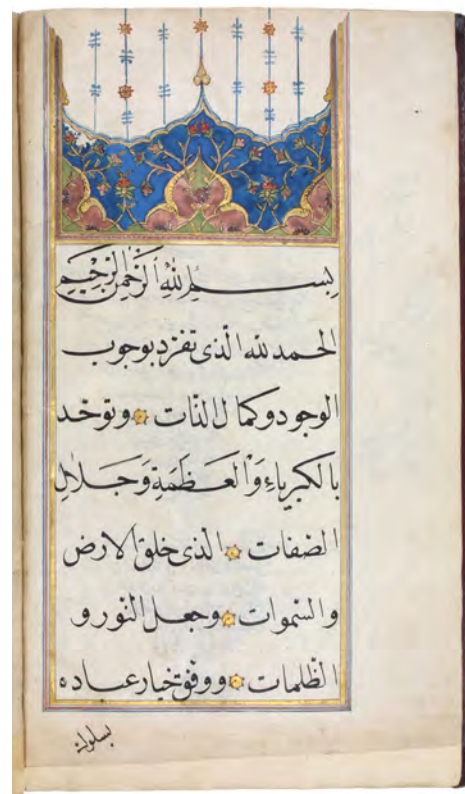 بِسْمِ اللّٰهِ الرَّحْمٰنِ الرَّحِيْمِ
الحمد لله الّذى تفرّد بوجوب
الوجود وكمال الذّات وتوحّد
بالكبرياءِ وَالْعَظَمَةِ وَجَلالِ
الصّفات الّذى خلق الارض
والسّموات وجعل النّور و
الظّلمات ووفّق خيار عباده
بسلوك